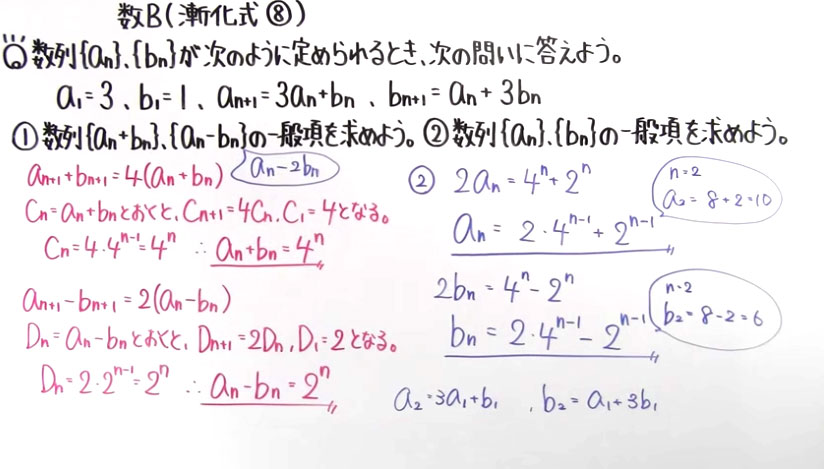 数B(漸化式⑧)
数列{an}、{bn}が次のように定められるとき、次の問いに答えよう。
a₁=3、b₁=1、an+1=3an+bn、bn+1=an+3bn
①数列{an+bn}、{an-bn}の一般項を求めよう。②数列{an}、{bn}の一般項を求めよう。
an+1+bn+1=4(an+bn)
an-2bn
Cn=an+bnとおくと、Cn+1=4Cn、C₁=4となる。
Cn=4・4ⁿ⁻¹=4ⁿ ∴an+bn=4ⁿ
an+1-bn+1=2(an-bn)
Dn=an-bnとおくと、Dn+1=2Dn、D₁=2となる。
Dn=2・2ⁿ⁻¹=2ⁿ ∴an-bn=2ⁿ
② 2an=4ⁿ+2ⁿ
n=2
a₂=8+2=10
an=2・4ⁿ⁻¹+2ⁿ⁻¹
2bn=4ⁿ-2ⁿ
n=2
b₂=8-2=6
bn=2・4ⁿ⁻¹-2ⁿ⁻¹
a₂=3a₁+b₁、b₂=a₁+3b₁